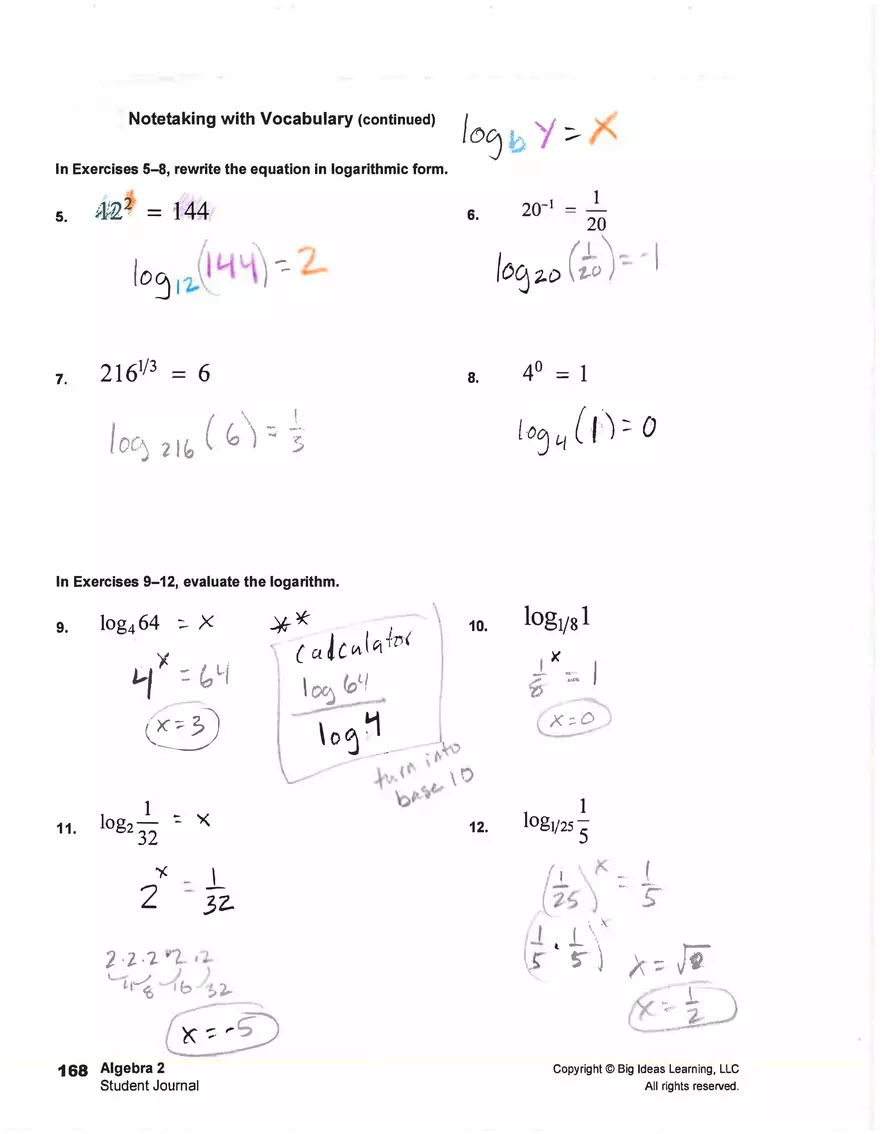 Notetaking with Vocabulary (continued)
log_b y = x
In Exercises 5–8, rewrite the equation in logarithmic form.
5. 12² = 144
log₁₂(144) = 2
6. 20⁻¹ = 1/20
log₂₀(1/20) = -1
7. 216^(1/3) = 6
log₂₁₆(6) = 1/3
8. 4⁰ = 1
log₄(1) = 0
In Exercises 9–12, evaluate the logarithm.
9. log₄64 = x
4^x = 64
x = 3
**
Calculator
log 64
log 4
turn into
base 10
10. log_(1/8) 1
1/8^x = 1
x = 0
11. log₂ 1/32 = x
2^x = 1/32
2·2·2·2·2
4 8 16 32
x = -5
12. log_(1/25) 1/5
(1/25)^x = 1/5
(1/5 · 1/5)^x
x = √
x = 1/2
168 Algebra 2
Student Journal
Copyright © Big Ideas Learning, LLC
All rights reserved.